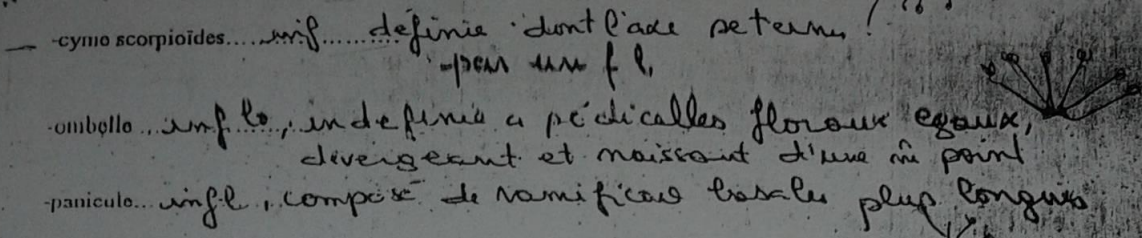 -cyme scorpioïdes.... inf ...... définie dont l'axe se term
-par un fl,
-ombelle... infle, indefinie a pédicelles floraux egaux,
divergeant et naissant d'une m̂ point
-panicule... infl, composé de ramificao basales plus longues